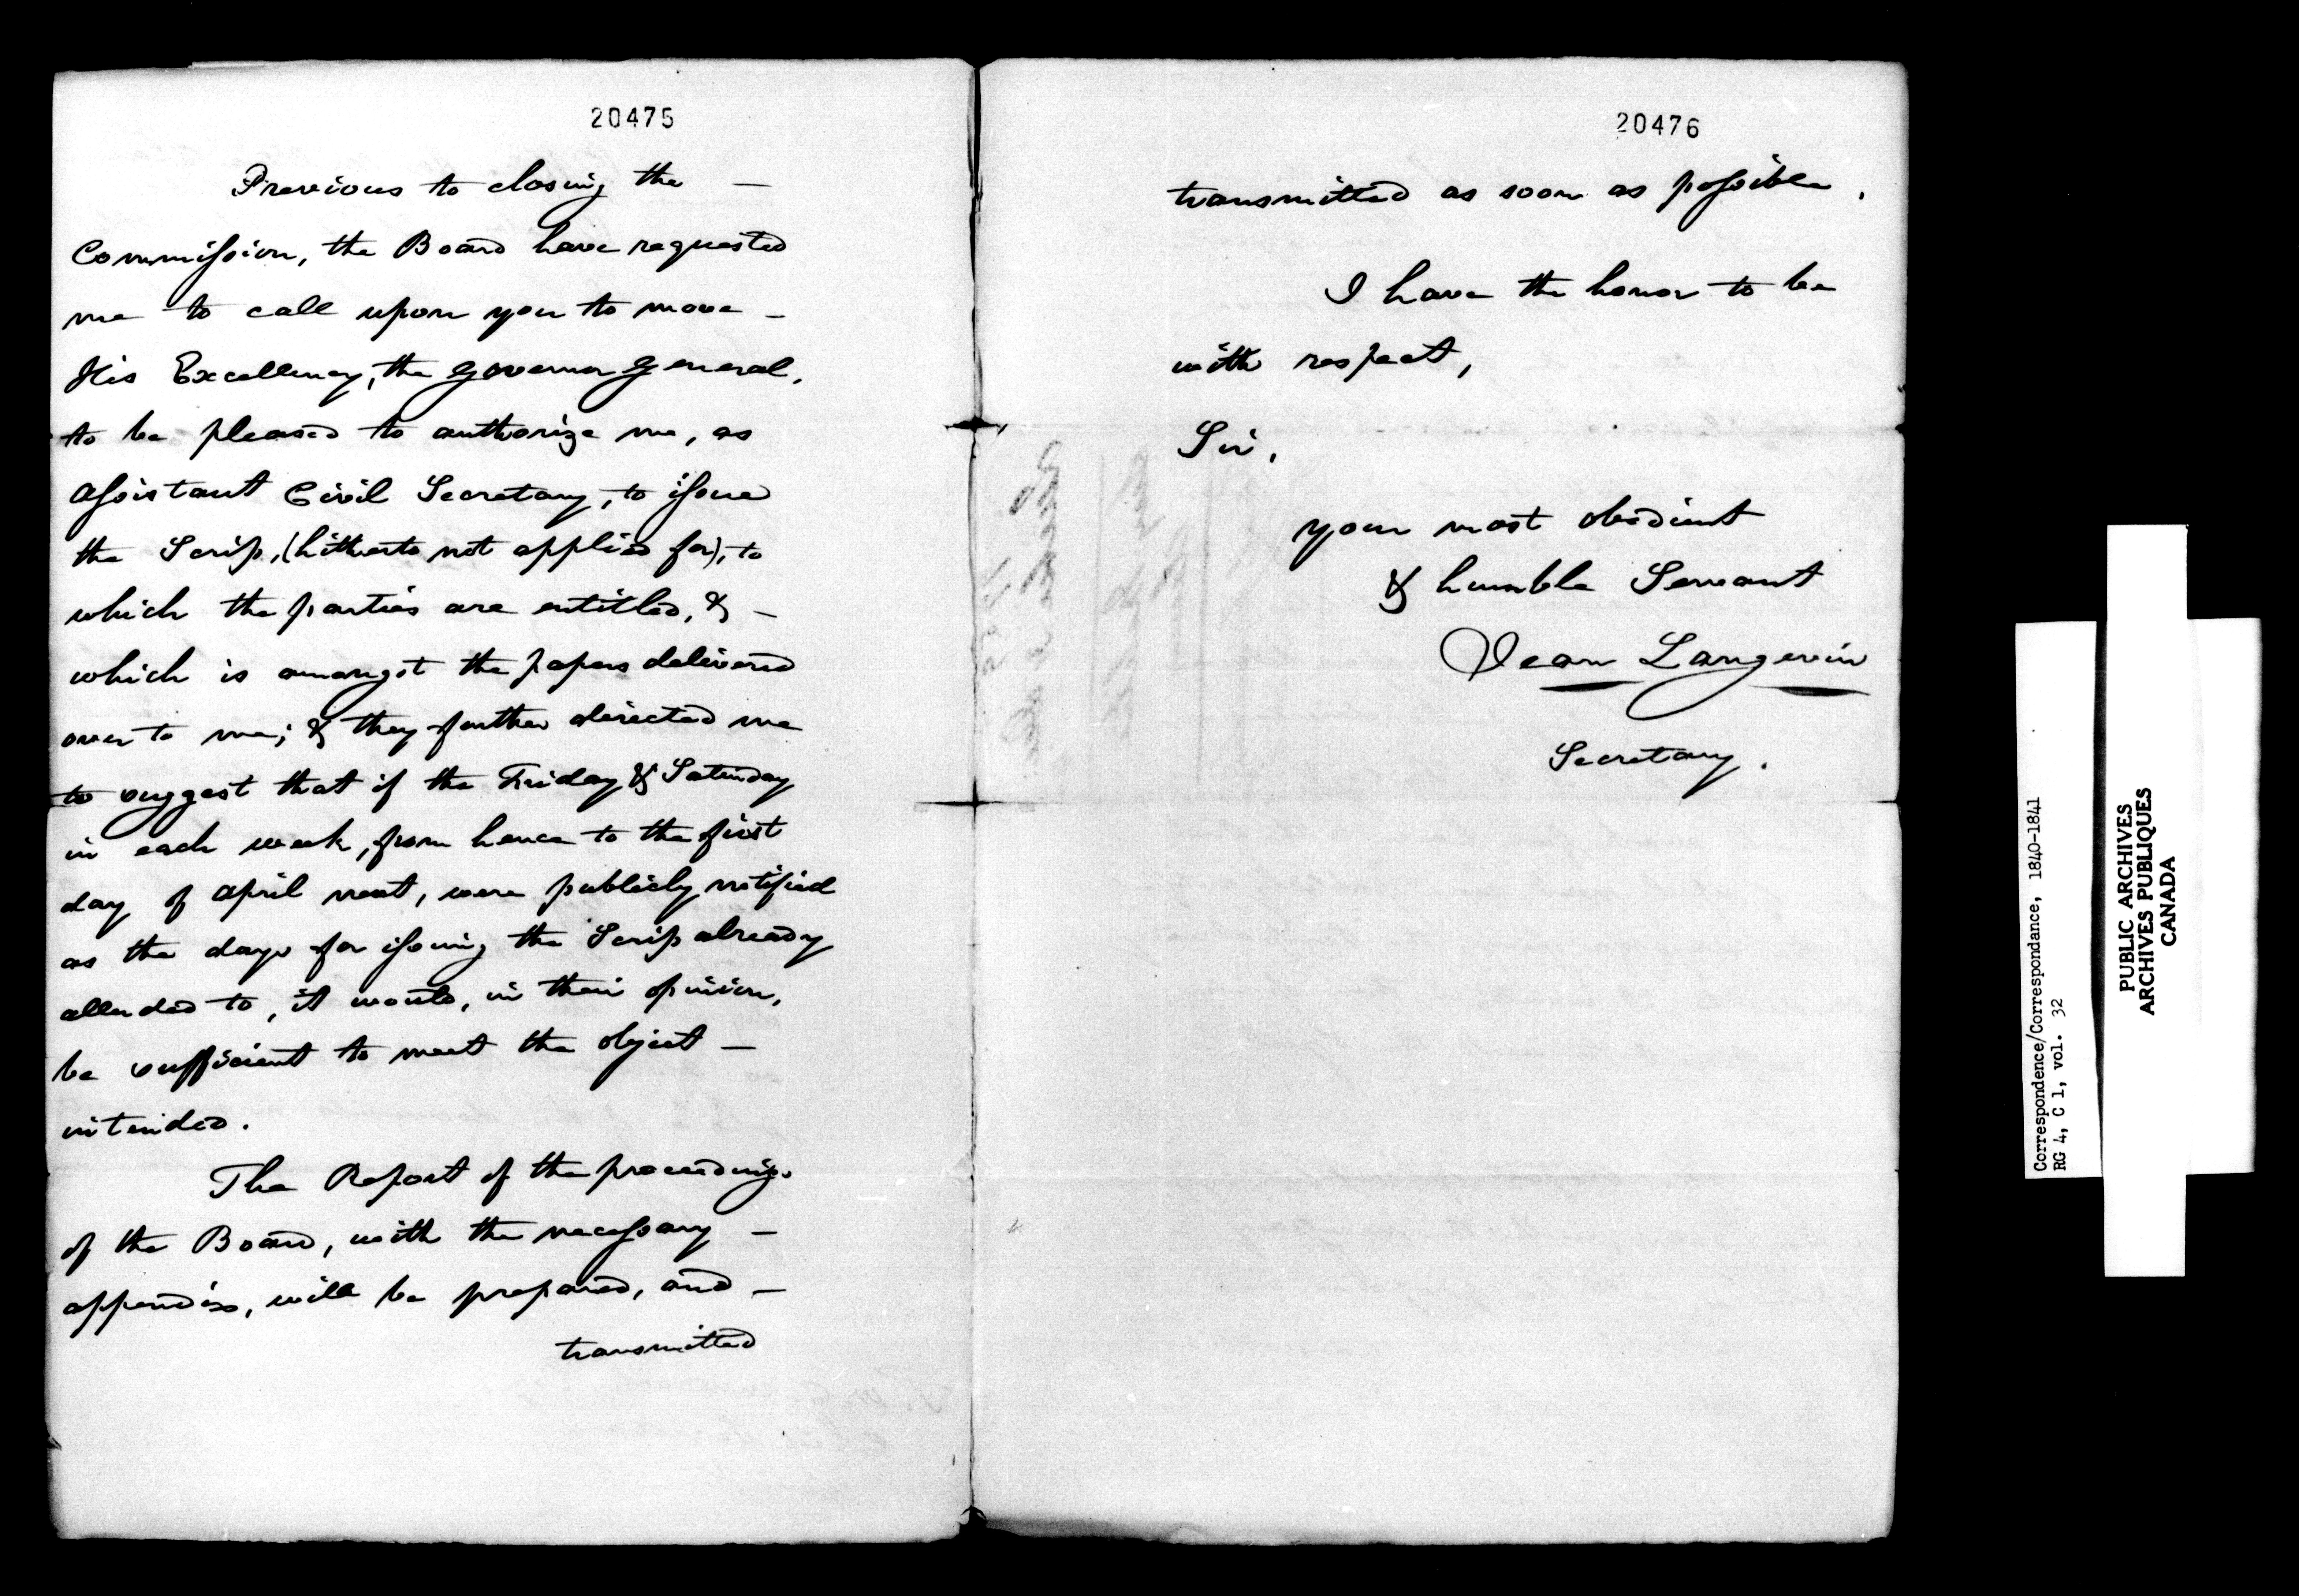 20475
Previous to closing the —
Commission, the Board have requested
me to call upon you to move —
His Excellency, the Governor General,
to be pleased to authorize me, as
Assistant Civil Secretary, to issue
the Scrip, (hitherto not applied for), to
which the parties are entitled, & —
which is amongst the papers delivered
over to me; & they further directed me
to suggest that if the Friday & Saturday
in each week, from hence to the first
day of April next, were publicly notified
as the days for issuing the Scrip already
alluded to, it would, in their opinion,
be sufficient to meet the object —
intended.
The Report of the proceedings
of the Board, with the necessary —
appendix, will be prepared, and —
transmitted
20476
transmitted as soon as possible.
I have the honor to be
with respect,
Sir,
your most obedient
& humble Servant
Jean Langevin
Secretary.
Correspondence/Correspondance, 1840-1841
RG 4, C 1, vol. 32
PUBLIC ARCHIVES
ARCHIVES PUBLIQUES
CANADA